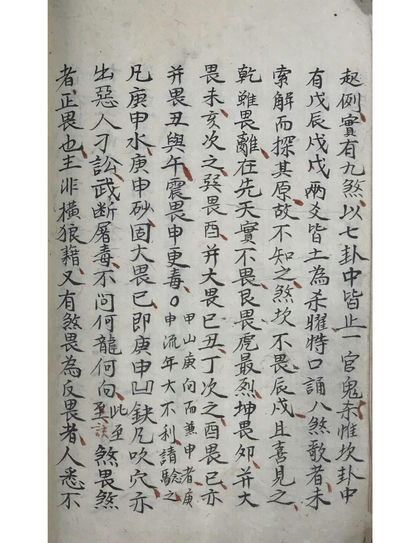 起例實有九煞以七卦中皆止一官鬼奈惟坎卦中
有戊辰戊戌兩爻皆土為杀曜特口誦八煞歌者未
索解而探其原故不知之煞坎不畏辰戌且喜見之
乾雖畏離在先天實不畏艮畏虎最烈坤畏夘并大
畏未亥次之巽畏酉并大畏巳丑丁次之酉畏巳亦
并畏丑與午震畏申更毒〇甲山庚向而兼申者庚
申流年大不利請驗之
凡庚申水庚申砂固大畏已即庚申凹缺凡吹穴亦
出惡人刁訟武断屠毒不問何龍何向此至
至訣煞畏煞
者正畏也主非橫狼藉又有煞畏為反畏者人悉不